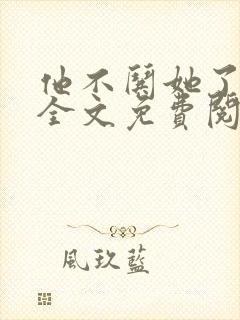 他不闗她了
全文免費閱
風玖藍